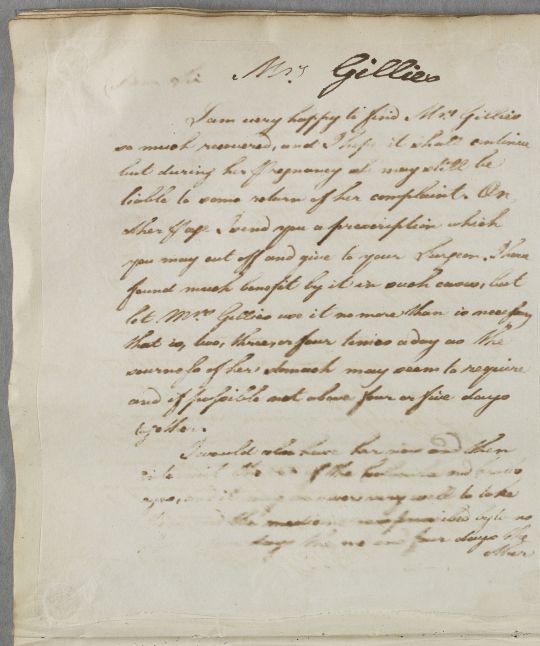 Mrs Gillies
I am very happy to find Mrs Gillies
so much recovered, and I hope it shall continue
but during her Pregnancy it may still be
liable to some return of her complaint. On
other Page I send you a prescription which
you may cut off and give to your Surgeon. I have
found much benefit by it in such cases, but
let Mrs Gillies use it no more than is necessary
that is, two, three, or four times a day as the
sourness of her stomach may seem to require
and if possible not above four or five days
together.
I would also have her now and then
the of the
and it may very well to take
the medicine prescribed
days the and four days the
other